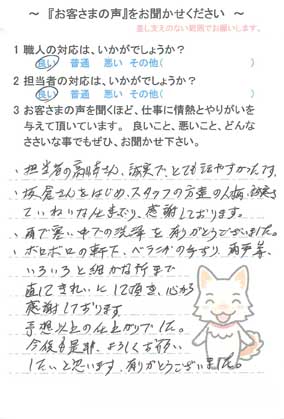 ～ 『お客さまの声』をお聞かせください ～
差し支えのない範囲でお願いします。
1 職人の対応は、いかがでしょうか？
良い 普通 悪い その他( )
2 担当者の対応は、いかがでしょうか？
良い 普通 悪い その他( )
3 お客さまの声を聞くほど、仕事に情熱とやりがいを
与えて頂いています。 良いこと、悪いこと、どんな
ささいな事でもぜひ、お聞かせ下さい。
、担当者の さん、誠実で、とても話やすかったです。
、 さんをはじめ、スタッフの方達の人柄、誠実さ
ていねいな仕事ぶり、感謝しております。
、雨で寒い中での洗浄を ありがとうございました。
、ボロボロの軒下、ベランダの手すり、雨戸等、
いろいろと細かな所まで
直してきれいにして頂き、心から
感謝しております
予想以上の仕上がりでした。
今後も是非、よろしくお願い
したいと思います。ありがとうございました。